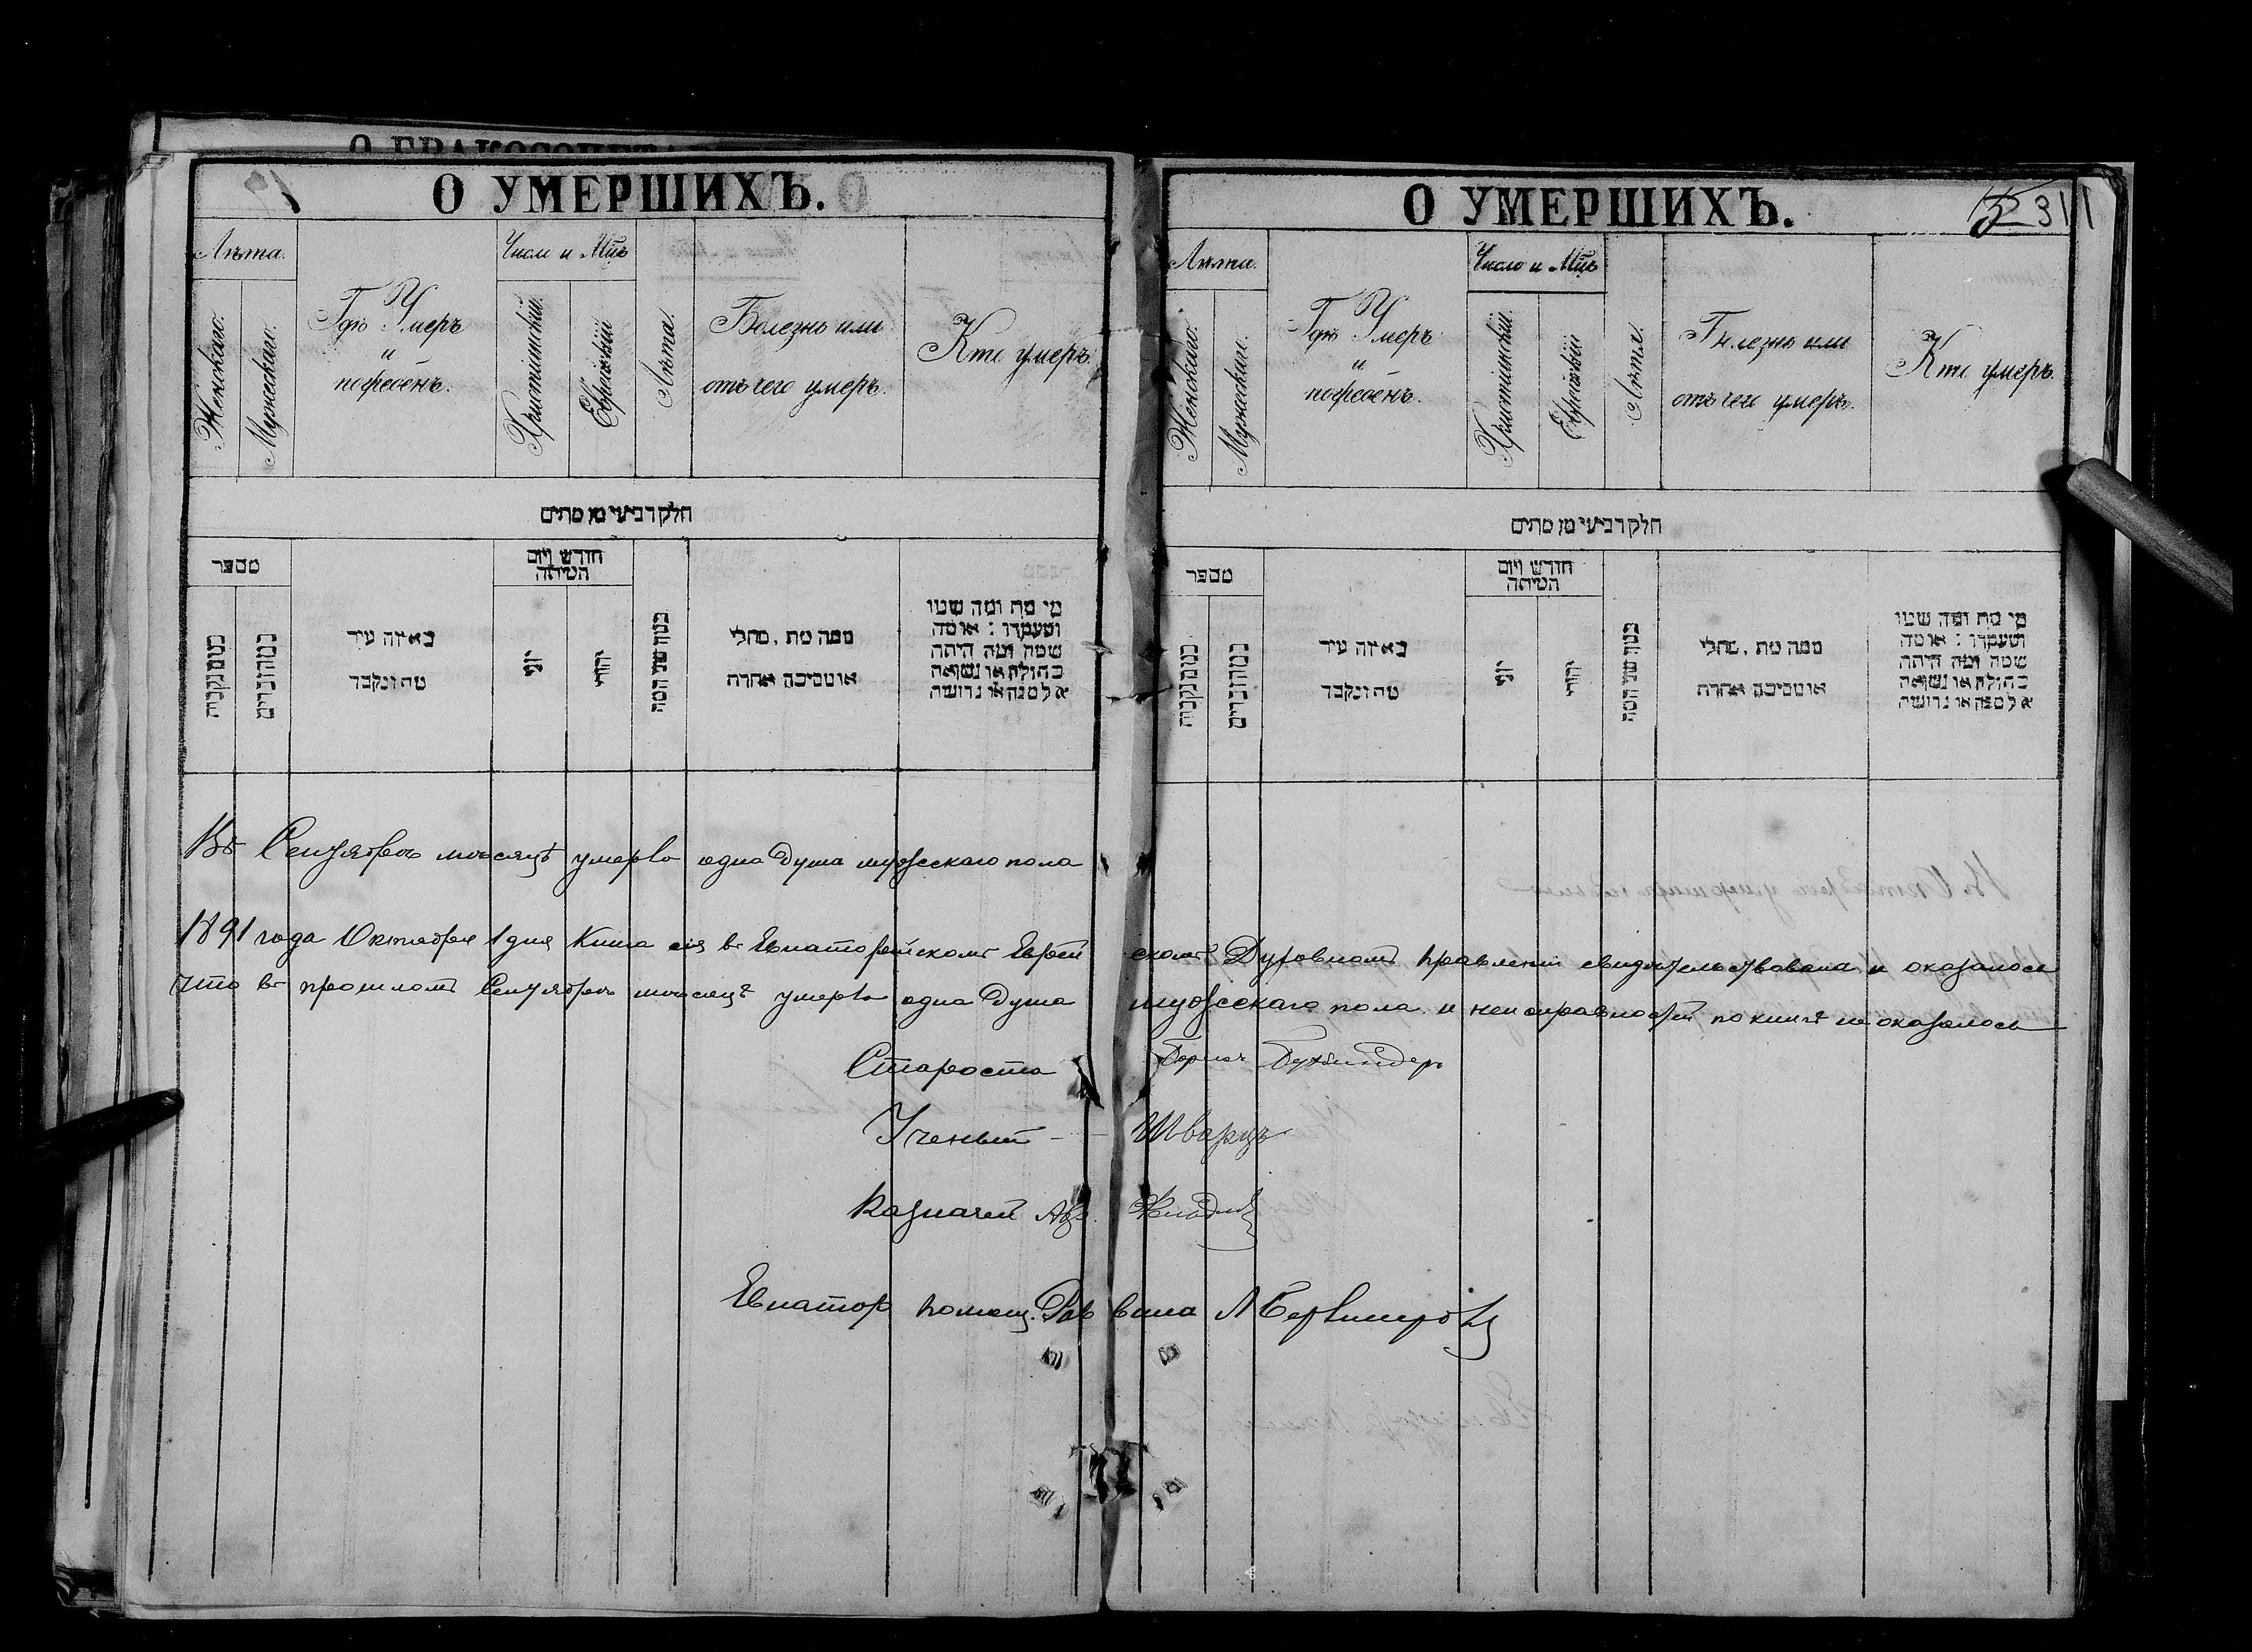 О УМЕРШИХЪ.
Лѣта.
Женскаго.
Мужескаго.
Гдѣ Умеръ
и
погребенъ.
Число и Мцъ
Христіянскій.
Еврейскій
Лѣта.
Болезнь или
отъ чего умеръ.
Кто умеръ.
חלק רביעי מן מתים
מספר
כמה נקבות
כמה זכרים
באיזה עיר
מת ונקבר
חודש ויום
המיתה
יוני
יהודי
ממה מת, מחלי
או מסיבה אחרת
מי מת ומה שמו
ומעמדו : או מה
שמה ומה היתה
בתולה או נשואה
אלמנה או גרושה
Въ Сентябрѣ мѣсяцѣ умерло одна душа мужескаго пола
О УМЕРШИХЪ.
311
Лѣта.
Женскаго.
Мужескаго.
Гдѣ Умеръ
и
погребенъ.
Число и Мцъ
Христіянскій.
Еврейскій
Лѣта.
Болезнь или
отъ чего умеръ.
Кто умеръ.
חלק רביעי מן מתים
מספר
כמה נקבות
כמה זכרים
באיזה עיר
מת ונקבר
חודש ויום
המיתה
יוני
יהודי
ממה מת, מחלי
או מסיבה אחרת
מי מת ומה שמו
ומעמדו : או מה
שמה ומה היתה
בתולה או נשואה
אלמנה או גרושה
1891 года Октября 1 дня Книга сія въ Евпаторійскомъ Еврейскомъ Духовномъ Правленіи свидѣтельствована и оказалось
что въ прошломъ Сентябрѣ мѣсяцѣ умерло одна душа мужескаго пола и неисправностей по книгѣ не оказалось
Староста Борисъ Бухбиндеръ
Ученый - - Шварцъ
Казначей Абр.
Евпатор помощ. Раввина